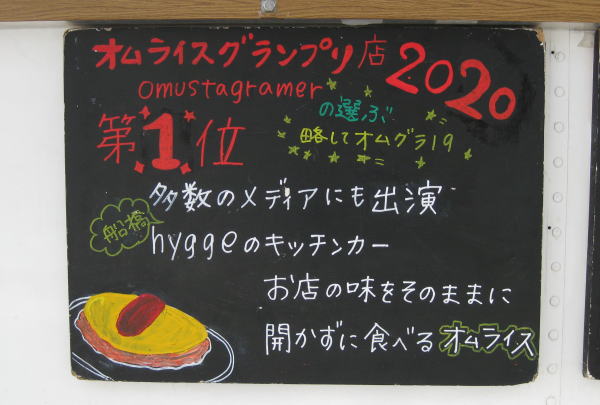 オムライスグランプリ店2020
omustagramer
の選ぶ
略してオムグラ19
第1位
多数のメディアにも出演
船橋
hyggeのキッチンカー
お店の味をそのままに
開かずに食べるオムライス